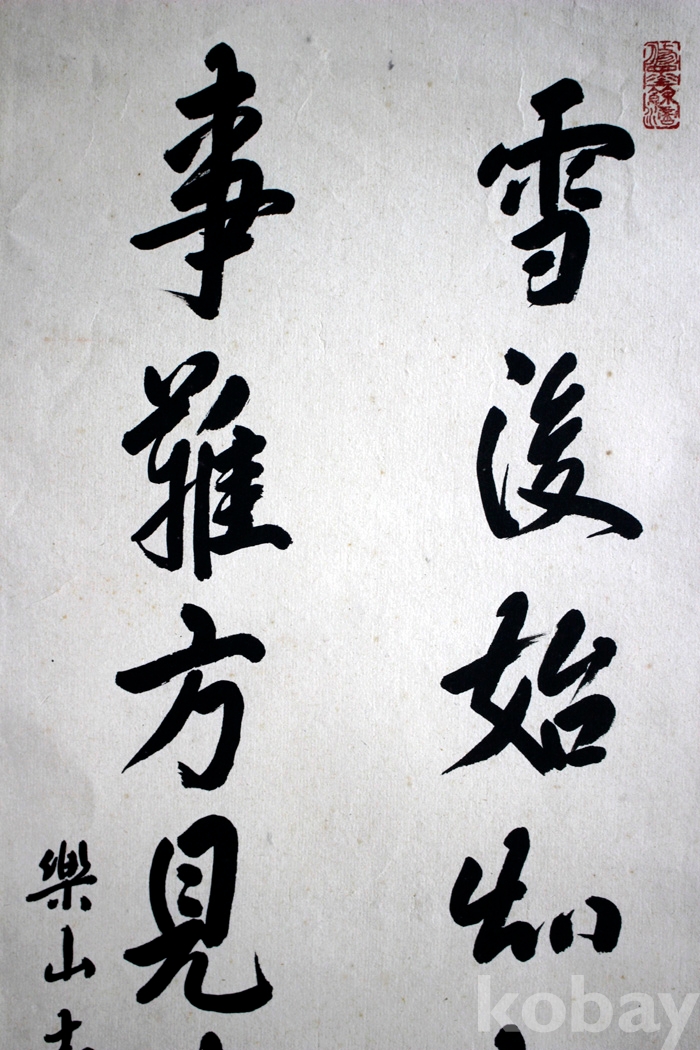 雪後始知
事難方見
樂山
kobay